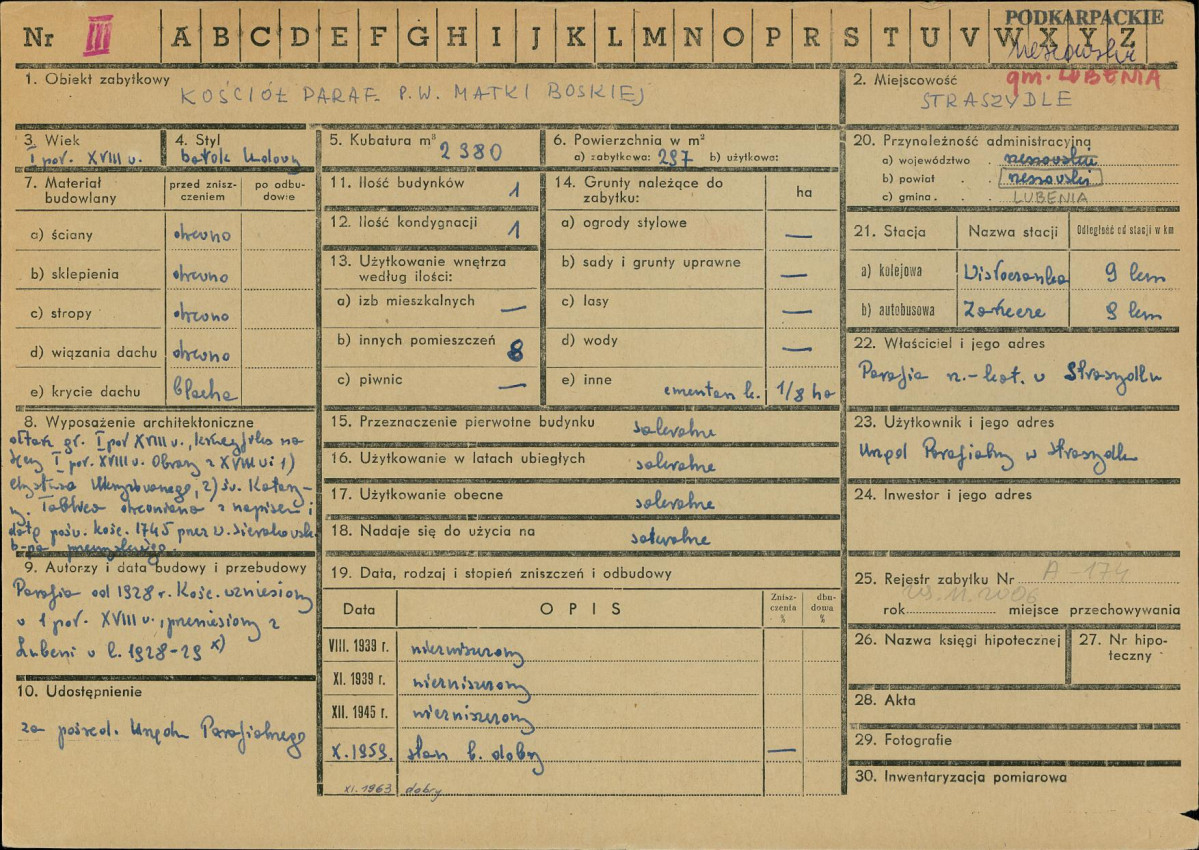 PODKARPACKIE
Nr III A B C D E F G H I J K L M N O P R S T U V W X Y Z
rzeszowskie
gm. LUBENIA
1. Obiekt zabytkowy
KOŚCIÓŁ PARAF. P.W. MATKI BOSKIEJ
2. Miejscowość
STRASZYDLE
3. Wiek
I poł. XVIII w.
4. Styl
barok ludowy
5. Kubatura m³
2380
6. Powierzchnia w m²
a) zabytkowa: 297 b) użytkowa:
7. Materiał budowlany
przed zniszczeniem
po odbudowie
a) ściany drewno
b) sklepienia drewno
c) stropy drewno
d) wiązania dachu drewno
e) krycie dachu blacha
8. Wyposażenie architektoniczne
ołtarz gł. I poł. XVIII w., krucyfiks na
tęczy I poł. XVIII w. Obrazy z XVIII w: 1)
Chrystusa Ukrzyżowanego, 2) św. Katarzy-
ny. Tablica drewniana z napisem i
datą pośw. kośc. 1745 przez W. Sierakowsk.
b-pa przemyskiego.
9. Autorzy i data budowy i przebudowy
Parafia od 1928 r. Kośc. wzniesiony
w 1 poł. XVIII w., przeniesiony z
Lubeni w l. 1928-29 x)
10. Udostępnienie
za pośred. Urzędu Parafialnego
11. Ilość budynków 1
12. Ilość kondygnacji 1
13. Użytkowanie wnętrza według ilości:
a) izb mieszkalnych —
b) innych pomieszczeń 8
c) piwnic —
14. Grunty należące do zabytku:
ha
a) ogrody stylowe —
b) sady i grunty uprawne —
c) lasy —
d) wody —
e) inne cmentarz k. 1/8 ha
15. Przeznaczenie pierwotne budynku sakralne
16. Użytkowanie w latach ubiegłych sakralne
17. Użytkowanie obecne sakralne
18. Nadaje się do użycia na sakralne
19. Data, rodzaj i stopień zniszczeń i odbudowy
Data OPIS Zniszczenia % dbudowa %
VIII. 1939 r. niezniszczony
XI. 1939 r. niezniszczony
XII. 1945 r. niezniszczony
X. 1959. stan b. dobry —
XI. 1963 dobry
20. Przynoleżność administracyjną
a) województwo rzeszowskie
b) powiat rzeszowski
c) gmina LUBENIA
21. Stacja Nazwa stacji Odległość od stacji w km
a) kolejowa 9 km
b) autobusowa 9 km
22. Właściciel i jego adres
Parafia rz.-kat. w Straszydlu
23. Użytkownik i jego adres
Urząd Parafialny w Straszydlu
24. Inwestor i jego adres
25. Rejestr zabytku Nr A-174
rok 29.11.2006 miejsce przechowywania
26. Nazwa księgi hipotecznej
27. Nr hipoteczny
28. Akta
29. Fotografie
30. Inwentaryzacja pomiarowa